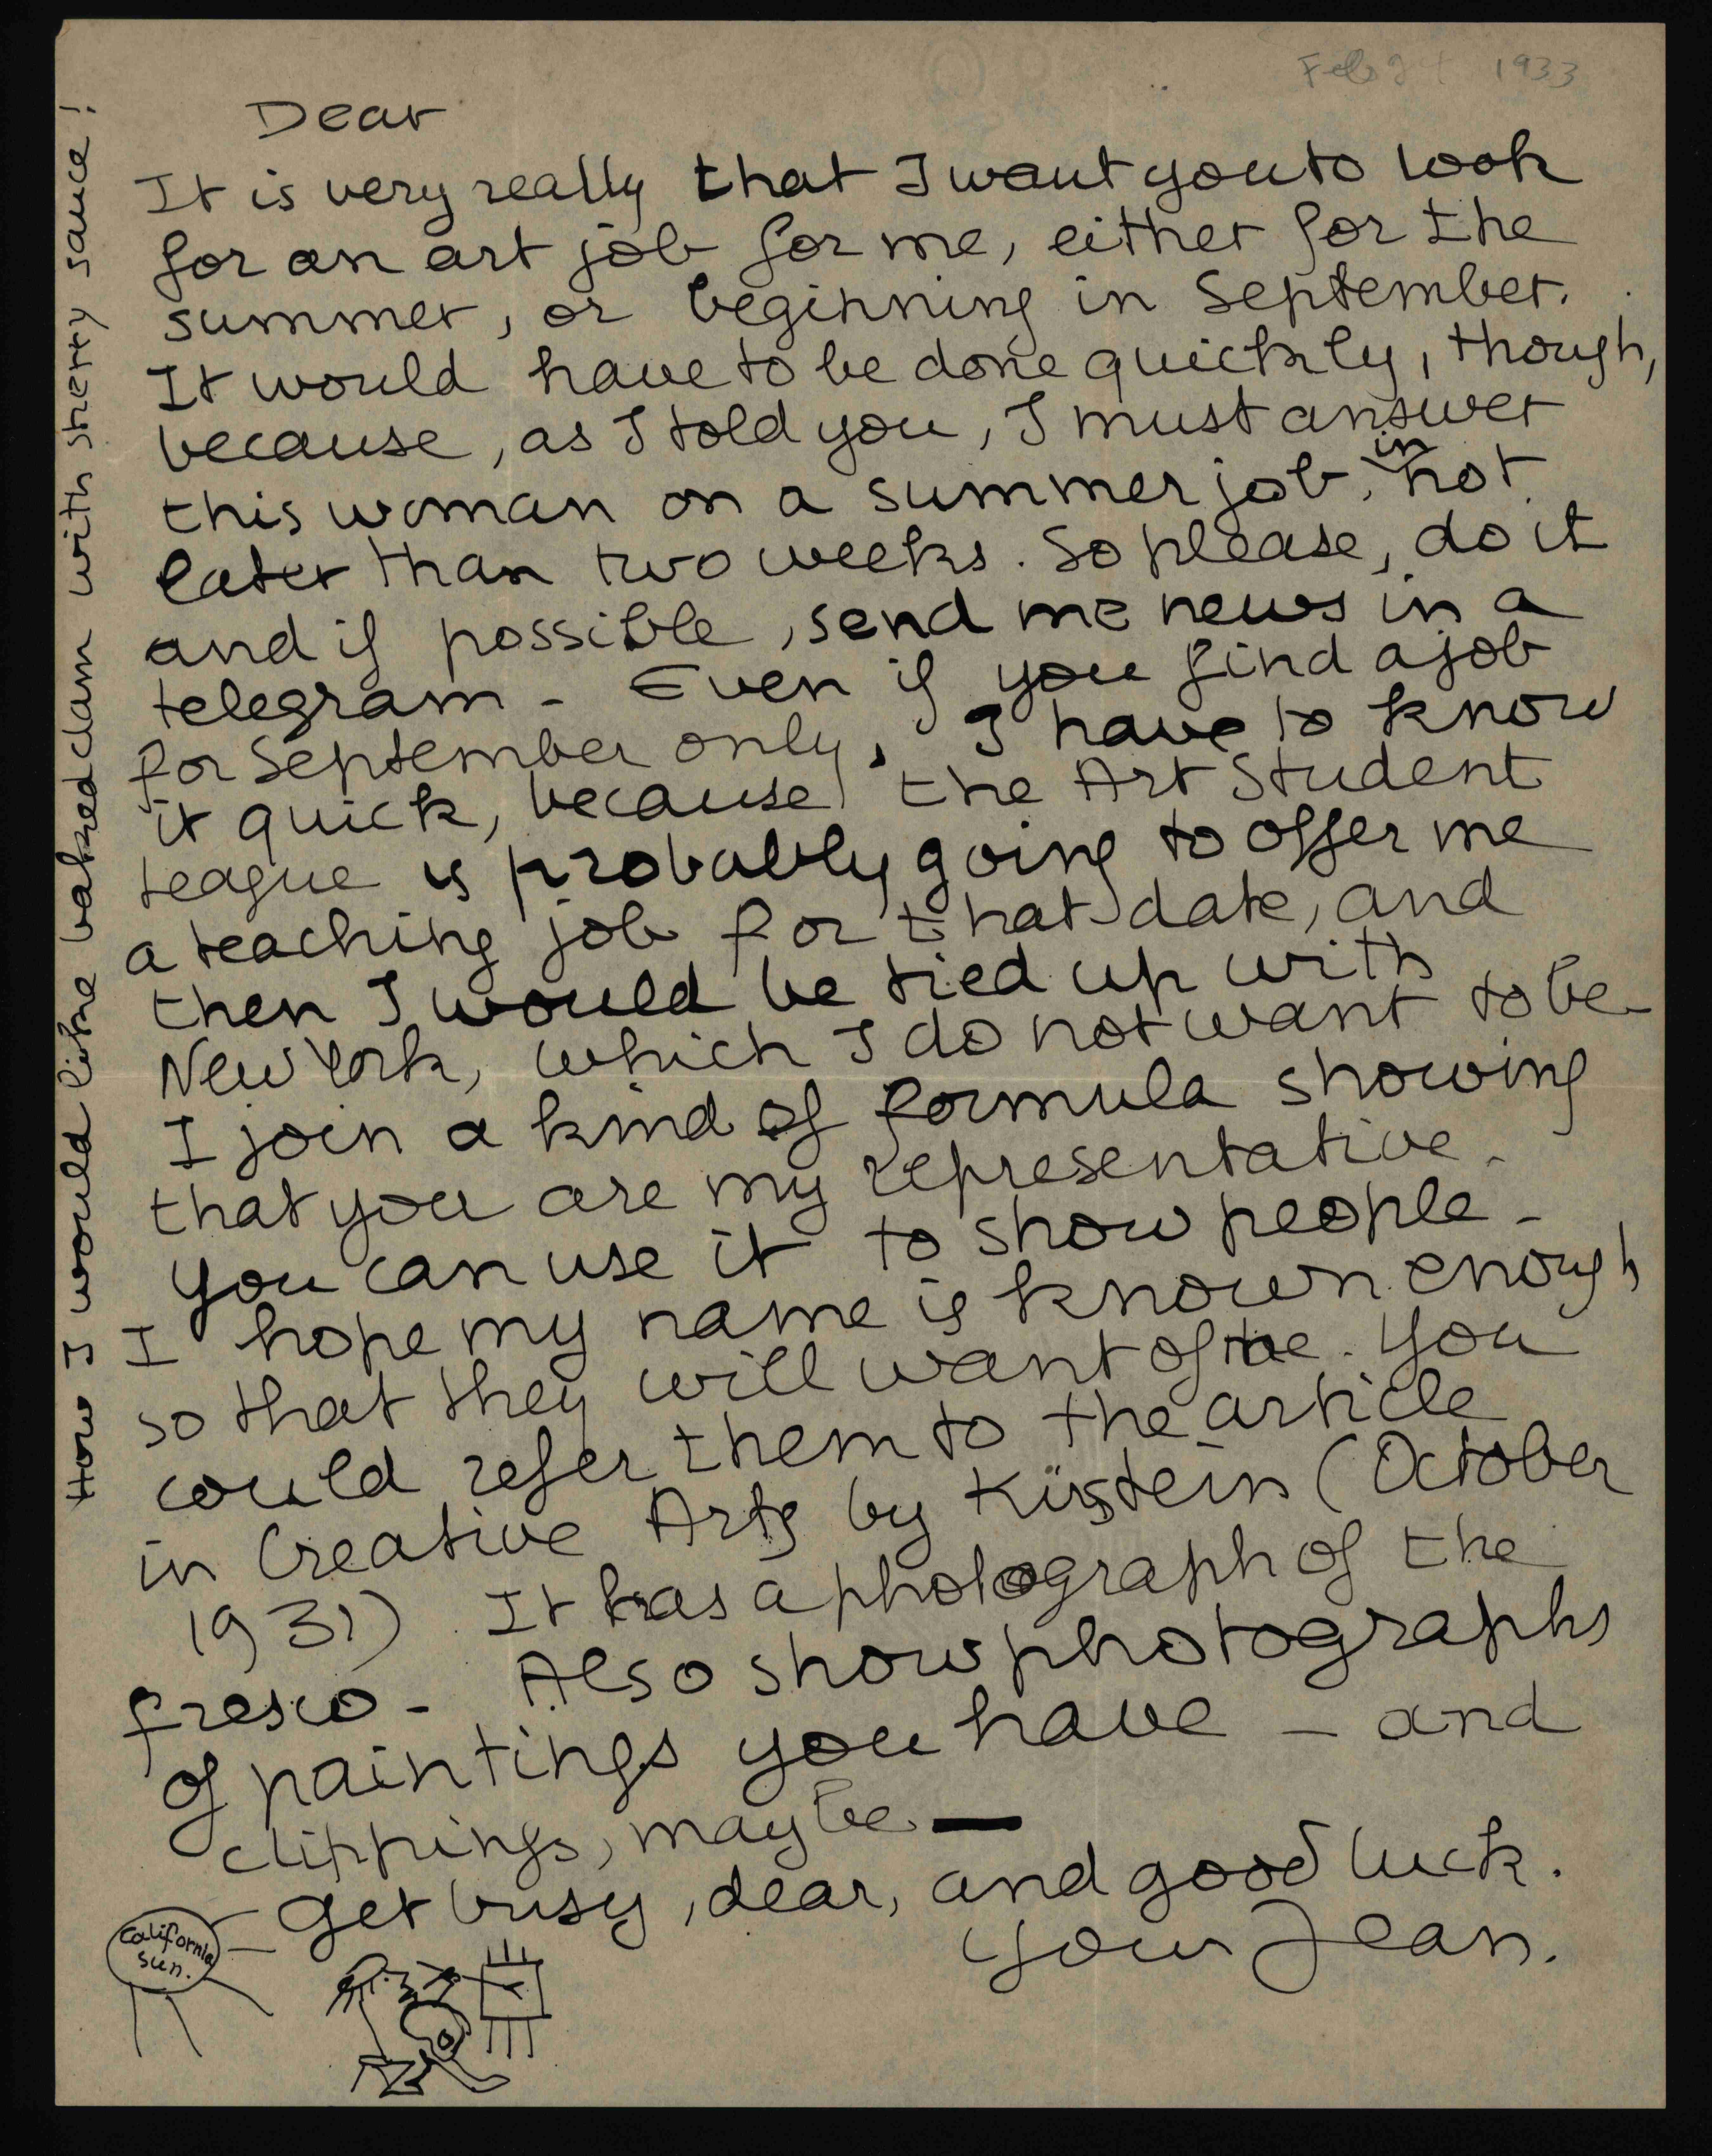 1933
Dear
It is very really that I want you to look
for an art job for me, either for the
summer, or beginning in September.
It would have to be done quickly, though,
because, as I told you, I must answer
this woman on a summer job, in not
later than two weeks. So please, do it
and if possible, send me news in a
telegram - Even if you find a job
for September only, I have to know
it quick, because the Art Student
League is probably going to offer me
a teaching job for that date, and
then I would be tied up with
New York, which I do not want to be
I join a kind of formula showing
that you are my representative.
You can use it to show people -
I hope my name is known enough
so that they will want of me. You
could refer them to the article
in Creative Arts by Kirstein (October
1931). It has a photograph of the
fresco - Also show photographs
of paintings you have - and
clippings, maybe —
Get busy, dear, and good luck.
your Jean.
California
sun.
How I would like baked clam with sherry sauce!